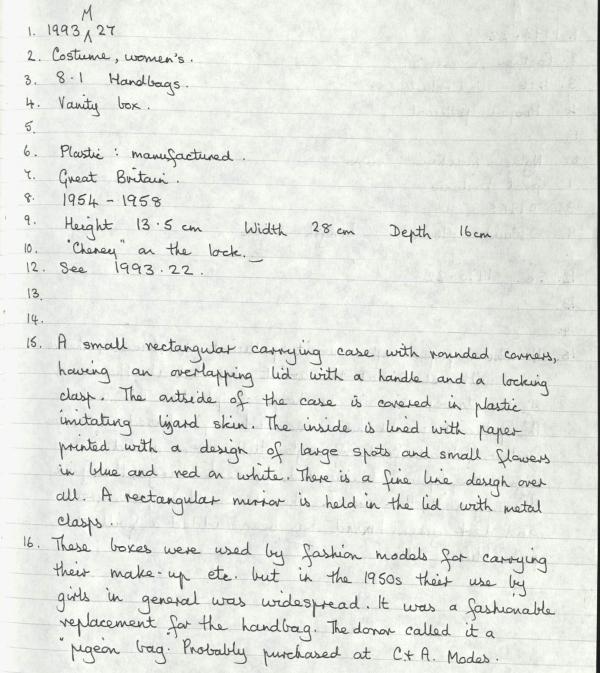 1. 1993 M 27
2. Costume, women's.
3. 8.1 Handbags.
4. Vanity box.
5.
6. Plastic : manufactured.
7. Great Britain.
8. 1954 - 1958
9. Height 13.5 cm Width 28 cm Depth 16 cm
10. "Cheney" on the lock.
12. See 1993.22.
13.
14.
15. A small rectangular carrying case with rounded corners,
having an overlapping lid with a handle and a locking
clasp. The outside of the case is covered in plastic
imitating lizard skin. The inside is lined with paper
printed with a design of large spots and small flowers
in blue and red on white. There is a fine line design over
all. A rectangular mirror is held in the lid with metal
clasps.
16. These boxes were used by fashion models for carrying
their make-up etc. but in the 1950s their use by
girls in general was widespread. It was a fashionable
replacement for the handbag. The donor called it a
"pigeon bag. Probably purchased at C & A. Modes.